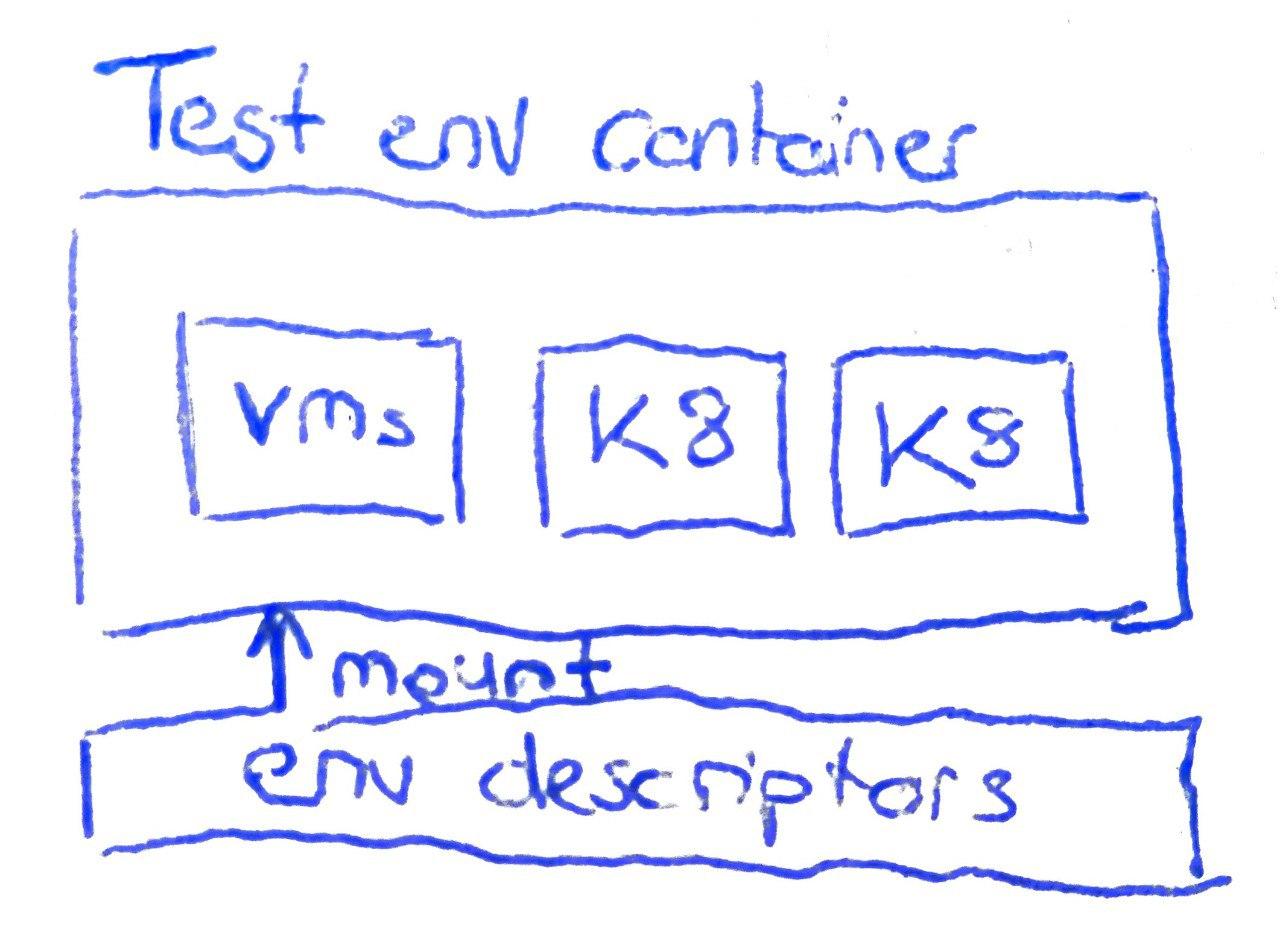 Test env container
vms K8 K8
mount
env descriptors